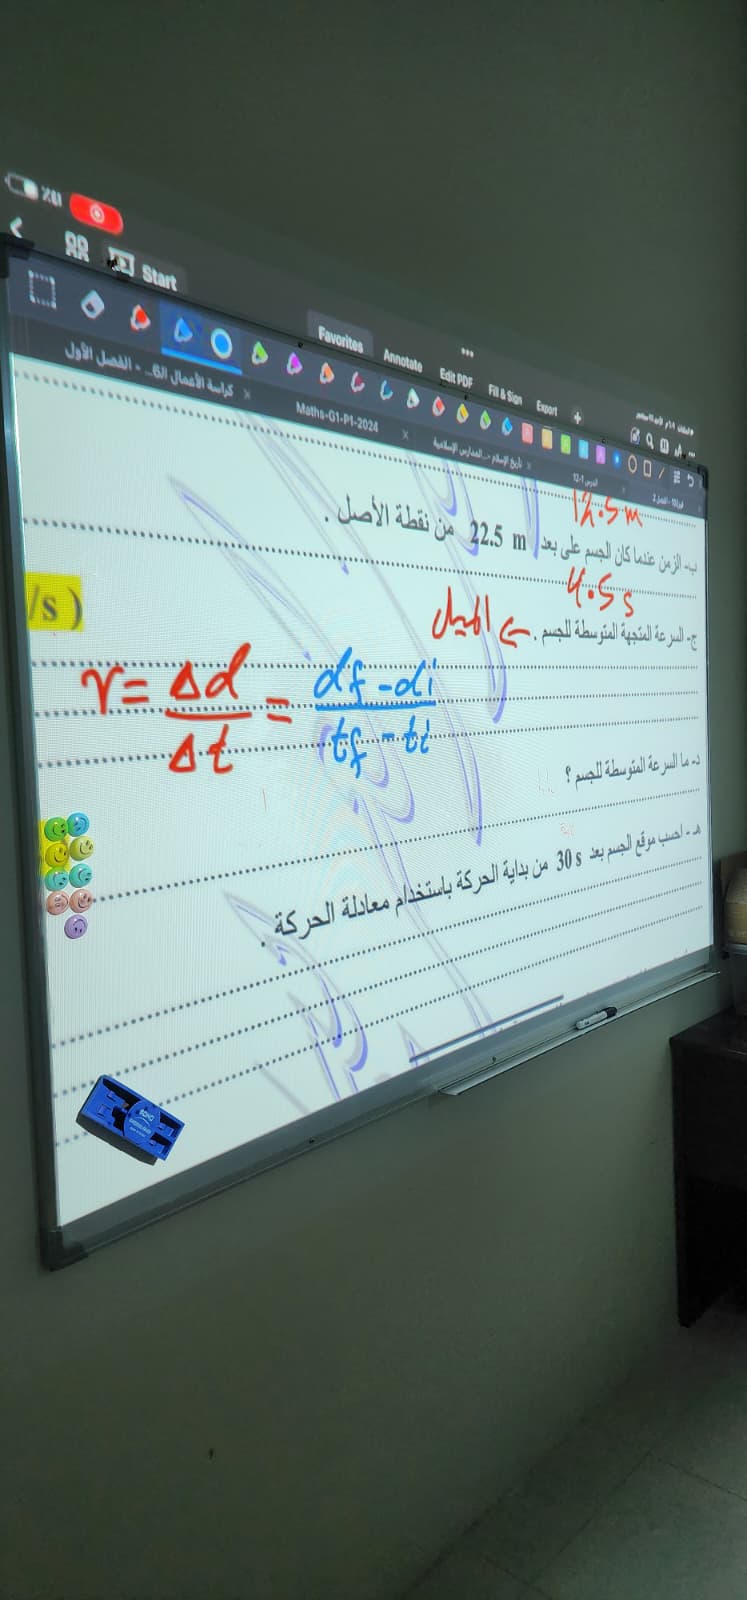 %81
Start
Favorites
Annotate
Edit PDF
Fill & Sign
Export
كراسة الأعمال ال6... - الفصل الأول
Maths-G1-P1-2024
تاريخ الإسلام -...المدارس الإسلامية
الدرس 1-12
12.5 m
ب- الزمن عندما كان الجسم على بعد 22.5 m من نقطة الأصل .
4.5 s
/s )
ج- السرعة المتجهة المتوسطة للجسم . الميل
v = Δd / Δt = df - di / tf - ti
د- ما السرعة المتوسطة للجسم ؟
هـ - احسب موقع الجسم بعد 30 s من بداية الحركة باستخدام معادلة الحركة .